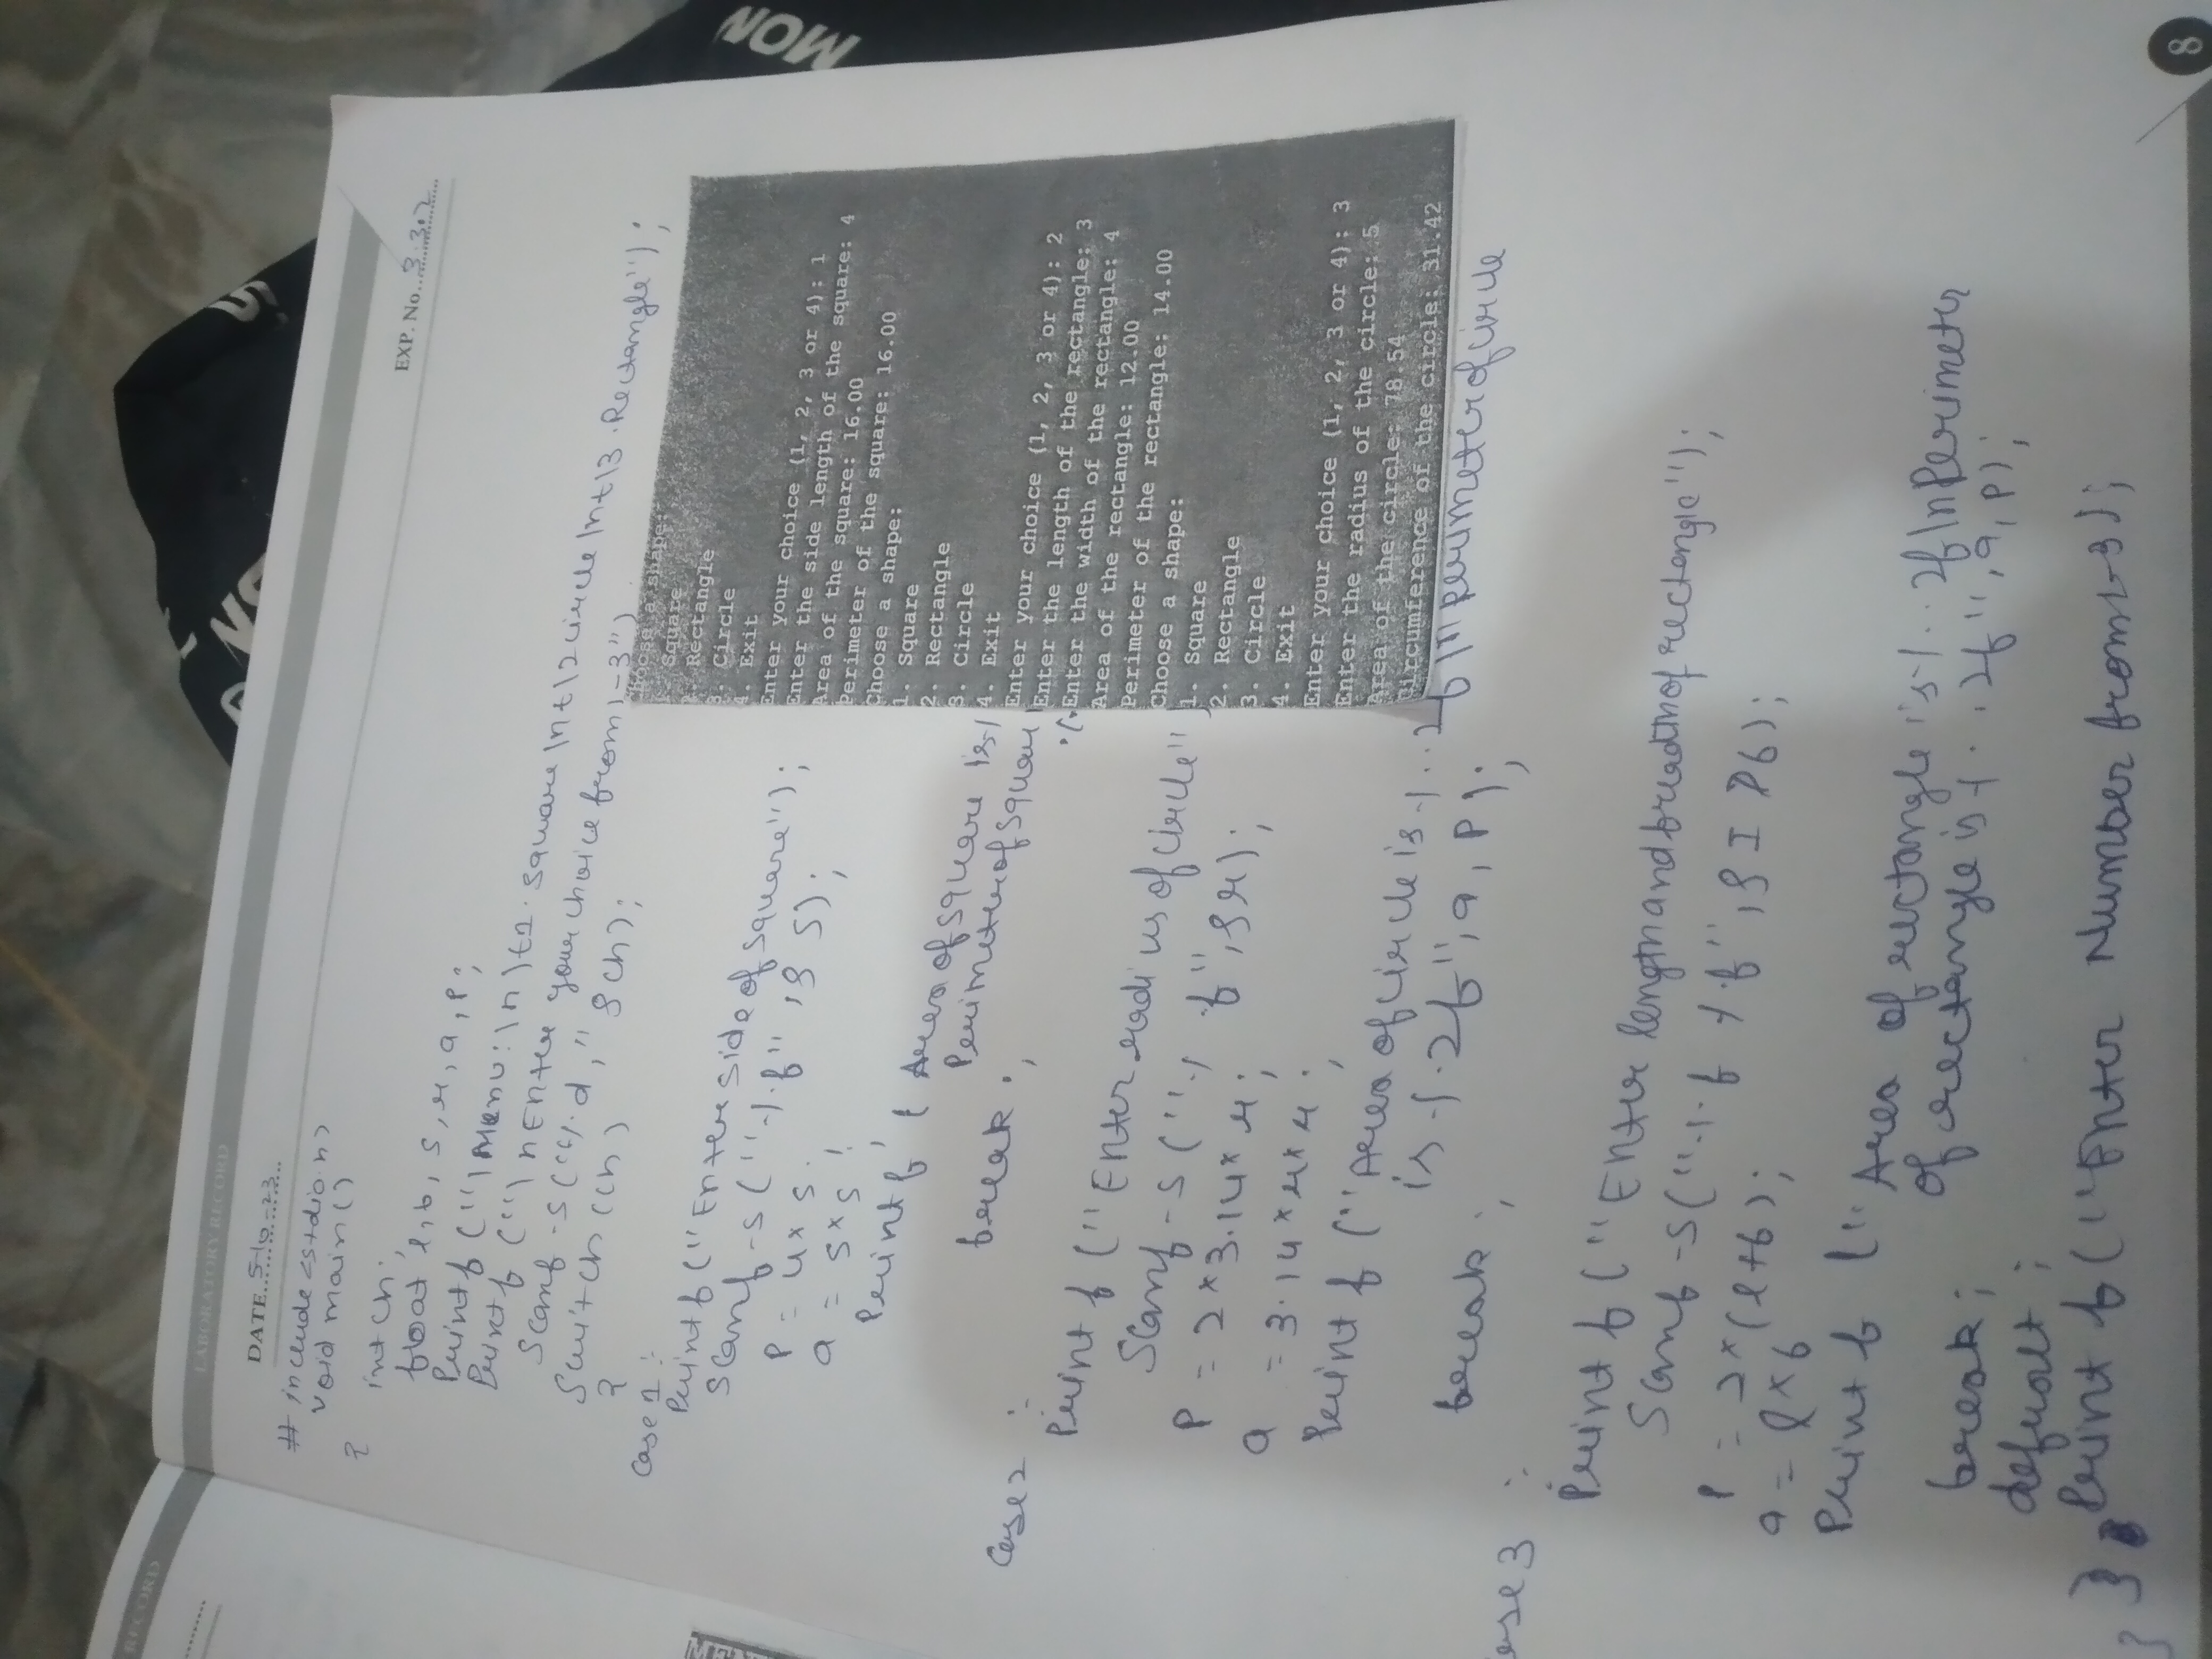 RECORD
LABORATORY RECORD
DATE 5-10-23
EXP. No. 3.3.2
# include <stdio.h>
void main()
{
int ch;
float l, b, s, r, a, p;
Printf ("\Menu:\n\t1. square\nt\2circle\nt\3.Rectangle");
Printf ("\nEnter your choice from 1-3")
Scanf-s("%d," &ch);
Switch (ch)
{
Case 1:
Printf ("Enter side of square");
Scanf-s ("%f", & s);
P = 4 * s
a = s*s;
Printf ( Area of square is
Perimeter of square
break;
Case 2 :
Printf ("Enter radius of circle"
Scanf-s ("% f", &r);
P = 2*3.14* r;
a = 3.14*r*r;
Printf ("Area of circle is %.2f\n perimeter of circle
is %.2f", a, p);
break;
Case 3 :
Printf ("Enter length and breadth of rectangle");
Scanf-s("%f %f", & I
P = 2*(l+b);
a = l*b
Printf ("Area of rectangle is %..2f\nPerimeter
of rectangle is %..2f", a, p);
break;
defualt;
Printf ("Enter Number from 1-3);
}
}
Choose a shape:
1. Square
2. Rectangle
3. Circle
4. Exit
Enter your choice (1, 2, 3 or 4): 1
Enter the side length of the square: 4
Area of the square: 16.00
Perimeter of the square: 16.00
Choose a shape:
1. Square
2. Rectangle
3. Circle
4. Exit
Enter your choice (1, 2, 3 or 4): 2
Enter the length of the rectangle: 3
Enter the width of the rectangle: 4
Area of the rectangle: 12.00
Perimeter of the rectangle: 14.00
Choose a shape:
1. Square
2. Rectangle
3. Circle
4. Exit
Enter your choice (1, 2, 3 or 4): 3
Enter the radius of the circle: 5
Area of the circle: 78.54
Circumference of the circle: 31.42
MON
8